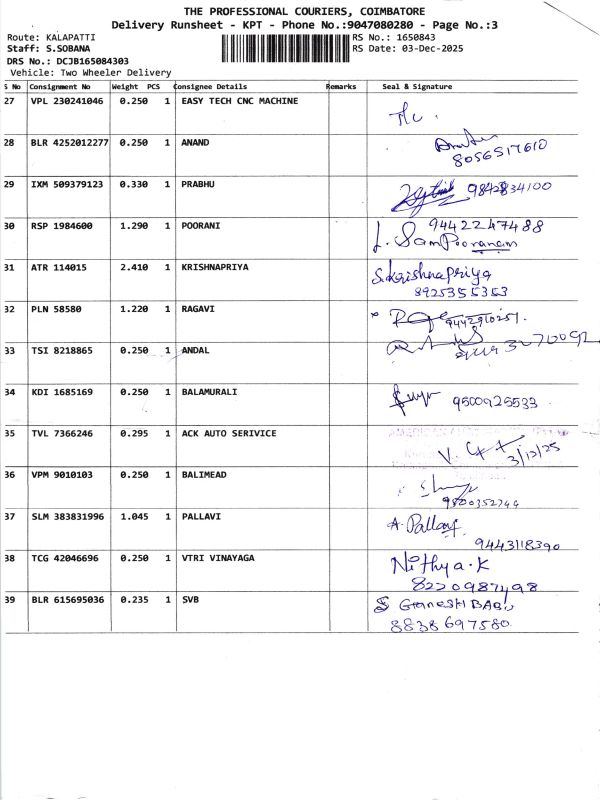 THE PROFESSIONAL COURIERS, COIMBATORE
Delivery Runsheet - KPT - Phone No.:9047080280 - Page No.:3
Route: KALAPATTI
RS No.: 1650843
Staff: S.SOBANA
RS Date: 03-Dec-2025
DRS No.: DCJB165084303
Vehicle: Two Wheeler Delivery
S No Consignment No Weight PCS Consignee Details Remarks Seal & Signature
27 VPL 230241046 0.250 1 EASY TECH CNC MACHINE
28 BLR 4252012277 0.250 1 ANAND
8056517610
29 IXM 509379123 0.330 1 PRABHU
30 RSP 1984600 1.290 1 POORANI 9442247488
L. Sampooranam
31 ATR 114015 2.410 1 KRISHNAPRIYA S.Krishnapriya
8925355353
32 PLN 58580 1.220 1 RAGAVI
9442910251.
33 TSI 8218865 0.250 1 ANDAL
34 KDI 1685169 0.250 1 BALAMURALI
9500925533
35 TVL 7366246 0.295 1 ACK AUTO SERIVICE
3/12/25
36 VPM 9010103 0.250 1 BALIMEAD
37 SLM 383831996 1.045 1 PALLAVI A. Pallavi
9443118390
38 TCG 42046696 0.250 1 VTRI VINAYAGA Nithya.K
8220987498
39 BLR 615695036 0.235 1 SVB S GANESH BABU
8838697580